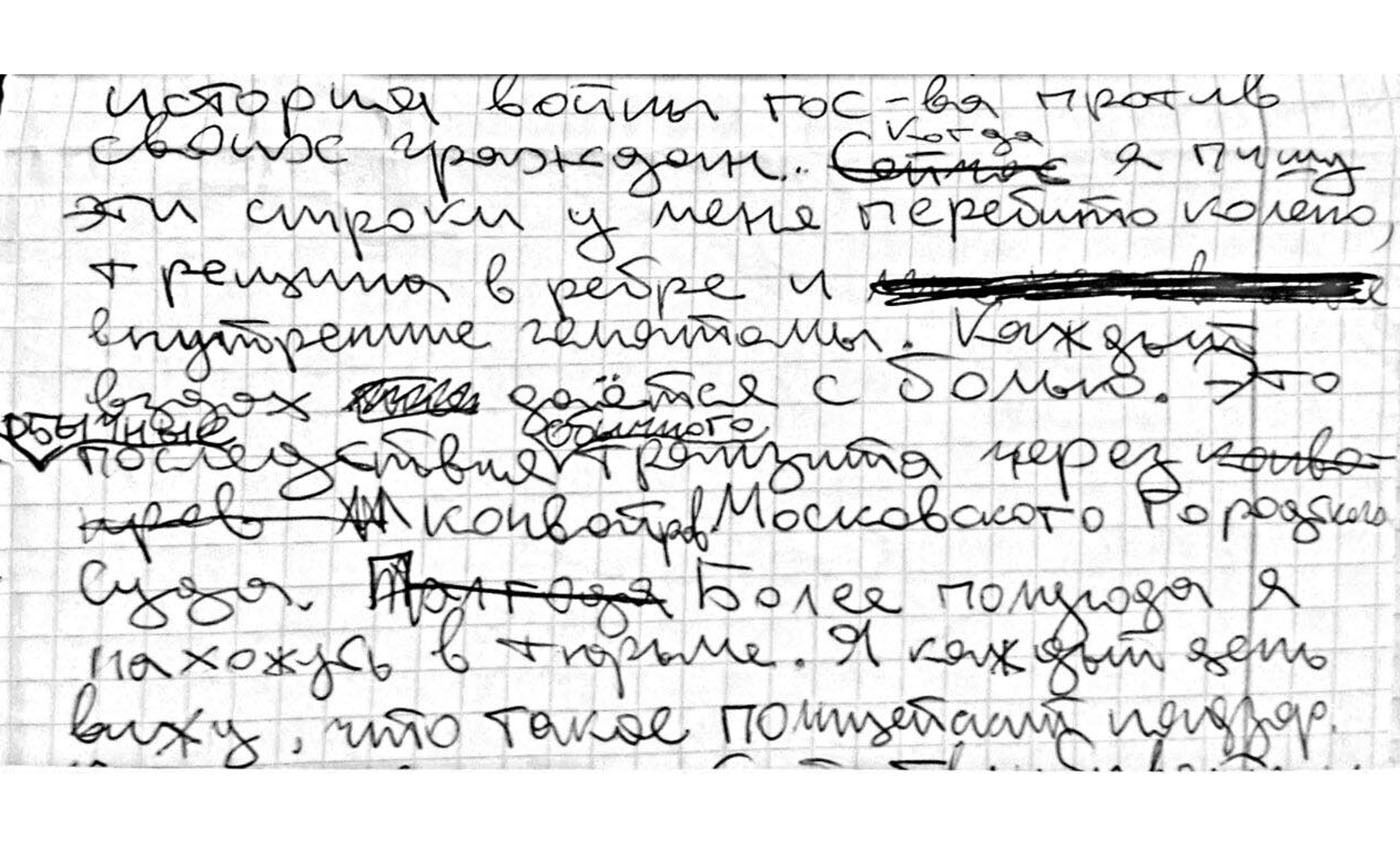 история войны гос-ва против
своих граждан. когда я пишу
эти строки у меня перебито колено,
трещина в ребре и
внутренние гематомы. Каждый
вздох даётся с болью. Это
обычные последствия обычного транзита через
конвойров Московского Городского
Суда. Более полугода я
нахожусь в тюрьме. Я каждый день
вижу, что такое полицейский надзор.